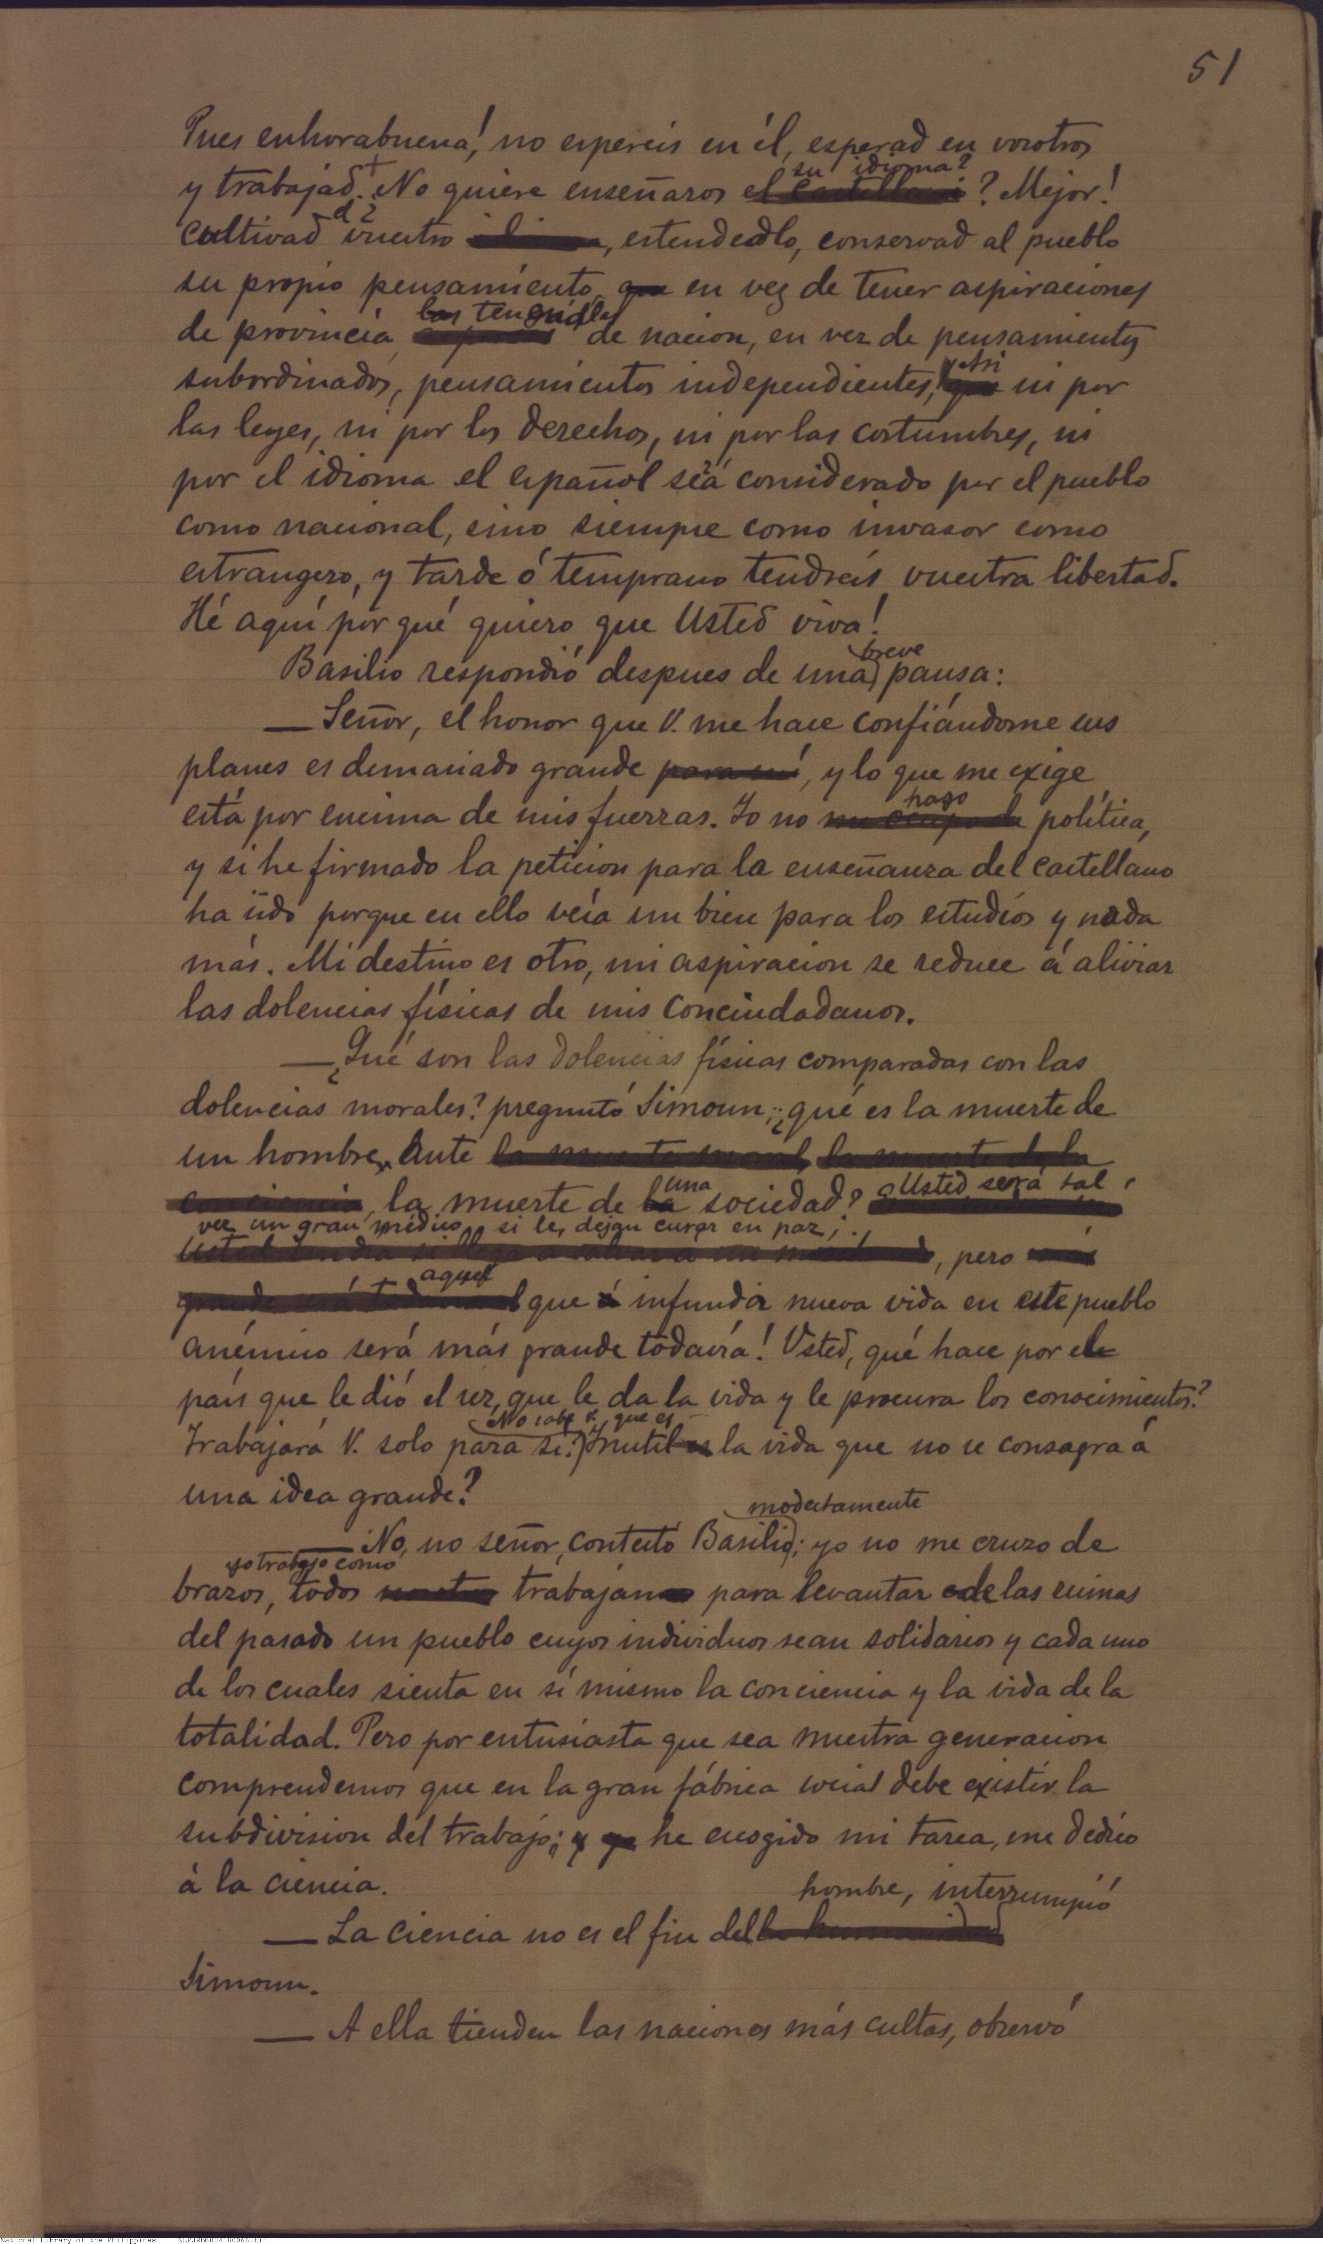 51
Pues enhorabuena! no espereis en él, esperad en vosotros
su idioma?
y trabajad. No quiere enseñaros el Castellano ? Mejor!
cultivad vuestro idioma, estendedlo, conservad al pueblo
su propio pensamiento, que en vez de tener aspiraciones
las tenedles
de provincia, de nacion, en vez de pensamientos
subordinados, pensamientos independientes, que ni por
las leyes, ni por los derechos, ni por las costumbres, ni
por el idioma el español será considerado por el pueblo
como nacional, sino siempre como invasor como
estrangero, y tarde ó temprano tendreis vuestra libertad.
Hé aquí por qué quiero que Usted viva!
breve
Basilio respondió despues de una pausa:
— Señor, el honor que V. me hace confiándome sus
planes es demasiado grande para mí, y lo que me exige
hago
está por encima de mis fuerzas. Yo no me ocupo de política,
y si he firmado la peticion para la enseñanza del castellano
ha sido porque en ello veía un bien para los estudios y nada
más. Mi destino es otro, mi aspiracion se reduce á aliviar
las dolencias físicas de mis conciudadanos.
— ¿Qué son las dolencias físicas comparadas con las
dolencias morales? preguntó Simoun; ¿qué es la muerte de
un hombre ante la muerte moral, la muerte de la
una Usted será tal
conciencia, la muerte de la sociedad?
vez un gran médico, si le dejan curar en paz;
, pero más
aquel
que á infundir nueva vida en este pueblo
anémico será más grande todavía! Usted, qué hace por el
país que le dió el ser, que le da la vida y le procura los conocimientos?
No sabe V. que es
Trabajará V. solo para sí? Inutil es la vida que no se consagra á
una idea grande?
modestamente
— No, no señor, contestó Basilio; yo no me cruzo de
yo trabajo como
brazos, todos trabajan para levantar de las ruinas
del pasado un pueblo cuyos individuos sean solidarios y cada uno
de los cuales sienta en sí mismo la conciencia y la vida de la
totalidad. Pero por entusiasta que sea nuestra generacion
comprendemos que en la gran fábrica social debe existir la
subdivision del trabajo; y yo he escogido mi tarea, me dedico
á la ciencia.
hombre, interrumpió
— La ciencia no es el fin del la humanidad
Simoun.
— A ella tienden las naciones más cultas, observó
National Library of the Philippines